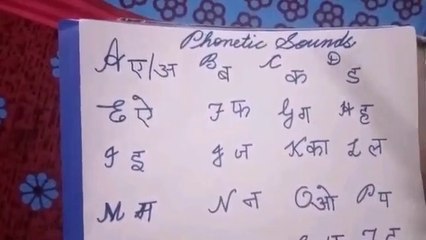 Phonetic Sounds
A ए/अ B ब C क D ड
E ऐ F फ G ग H ह
I इ J ज K का L ल
M म N न O ओ P प